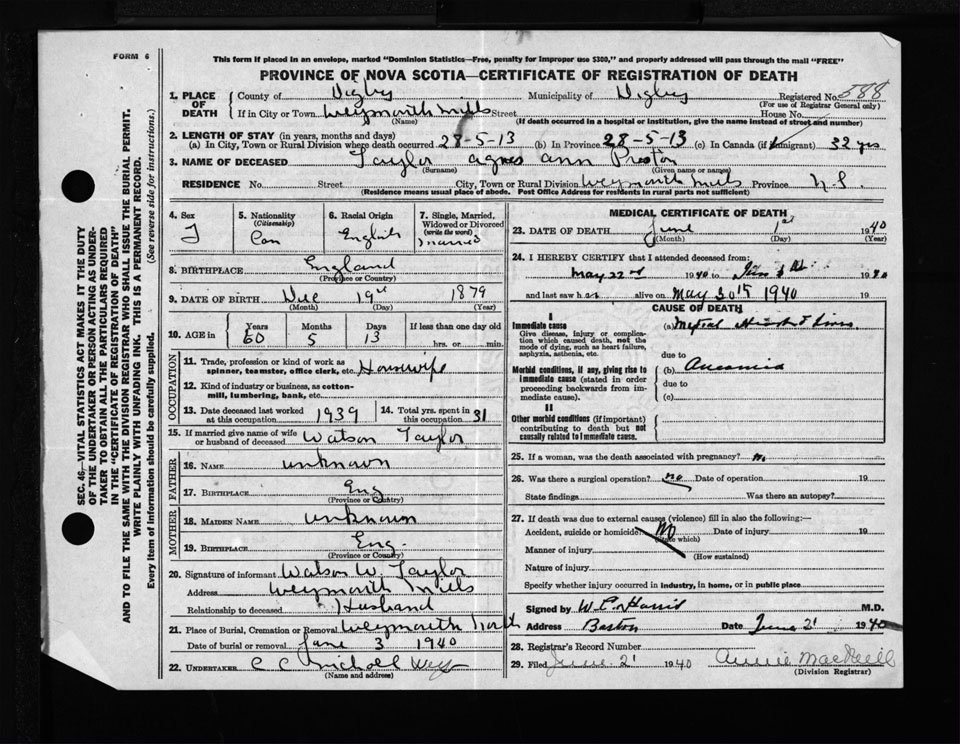 FORM 6
This form if placed in an envelope, marked "Dominion Statistics—Free, penalty for improper use $300," and properly addressed will pass through the mail "FREE"
PROVINCE OF NOVA SCOTIA—CERTIFICATE OF REGISTRATION OF DEATH
SEC. 46—VITAL STATISTICS ACT MAKES IT THE DUTY
OF THE UNDERTAKER OR PERSON ACTING AS UNDER-
TAKER TO OBTAIN ALL THE PARTICULARS REQUIRED
IN THE "CERTIFICATE OF REGISTRATION OF DEATH"
AND TO FILE THE SAME WITH THE DIVISION REGISTRAR WHO SHALL ISSUE THE BURIAL PERMIT.
WRITE PLAINLY WITH UNFADING INK. THIS IS A PERMANENT RECORD.
Every item of information should be carefully supplied. (See reverse side for instructions.)
1. PLACE OF DEATH County of Digby Municipality of Digby Registered No. 588
(For use of Registrar General only)
If in City or Town Weymouth Mills Street House No.
(Name) (If death occurred in a hospital or institution, give the name instead of street and number)
2. LENGTH OF STAY (in years, months and days)
(a) In City, Town or Rural Division where death occurred 28-5-13 (b) In Province 28-5-13 (c) In Canada (if immigrant) 32 yrs
3. NAME OF DECEASED Taylor Agnes Ann Preston
(Surname) (Given name or names)
RESIDENCE No. Street City, Town or Rural Division Weymouth Mills Province N.S.
(Residence means usual place of abode. Post Office Address for residents in rural parts not sufficient)
4. Sex F
5. Nationality (Citizenship) Can
6. Racial Origin English
7. Single, Married, Widowed or Divorced (write the word) Married
8. BIRTHPLACE England
(Province or Country)
9. DATE OF BIRTH Dec 19th 1879
(Month) (Day) (Year)
10. AGE in Years 60 Months 5 Days 13 If less than one day old hrs. or min.
OCCUPATION
11. Trade, profession or kind of work as spinner, teamster, office clerk, etc. Housewife
12. Kind of industry or business, as cotton-mill, lumbering, bank, etc.
13. Date deceased last worked at this occupation 1939
14. Total yrs. spent in this occupation 31
15. If married give name of wife or husband of deceased Watson Taylor
FATHER
16. NAME unknown
17. BIRTHPLACE Eng
(Province or Country)
MOTHER
18. MAIDEN NAME unknown
19. BIRTHPLACE Eng.
(Province or Country)
20. Signature of informant Watson W. Taylor
Address Weymouth Mills
Relationship to deceased Husband
21. Place of Burial, Cremation or Removal Weymouth North
Date of burial or removal June 3 1940
22. UNDERTAKER C C Nicholl Wey
(Name and address)
MEDICAL CERTIFICATE OF DEATH
23. DATE OF DEATH June 1st 1940
(Month) (Day) (Year)
24. I HEREBY CERTIFY that I attended deceased from:
May 22nd 1940 to 19
and last saw h er alive on May 30th 1940
CAUSE OF DEATH
I
Immediate cause
Give disease, injury or complication which caused death, not the mode of dying, such as heart failure, asphyxia, asthenia, etc.
(a) Mitral
due to
Morbid conditions, if any, giving rise to immediate cause (stated in order proceeding backwards from immediate cause).
(b) Anaemia
due to
(c)
II
Other morbid conditions (if important) contributing to death but not causally related to immediate cause.
25. If a woman, was the death associated with pregnancy? No
26. Was there a surgical operation? no Date of operation 19
State findings Was there an autopsy?
27. If death was due to external causes (violence) fill in also the following:—
Accident, suicide or homicide? No Date of injury 19
(State which)
Manner of injury
(How sustained)
Nature of injury
Specify whether injury occurred in industry, in home, or in public place
Signed by W. C. Harris M.D.
Address Barton Date June 21 1940
28. Registrar's Record Number
29. Filed June 21 1940 Annie MacNeill
(Division Registrar)